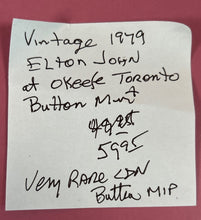 Vintage 1979
ELTON JOHN
at OKeefe Toronto
Button Mint
5995
Very RARE CDN
Button MIP